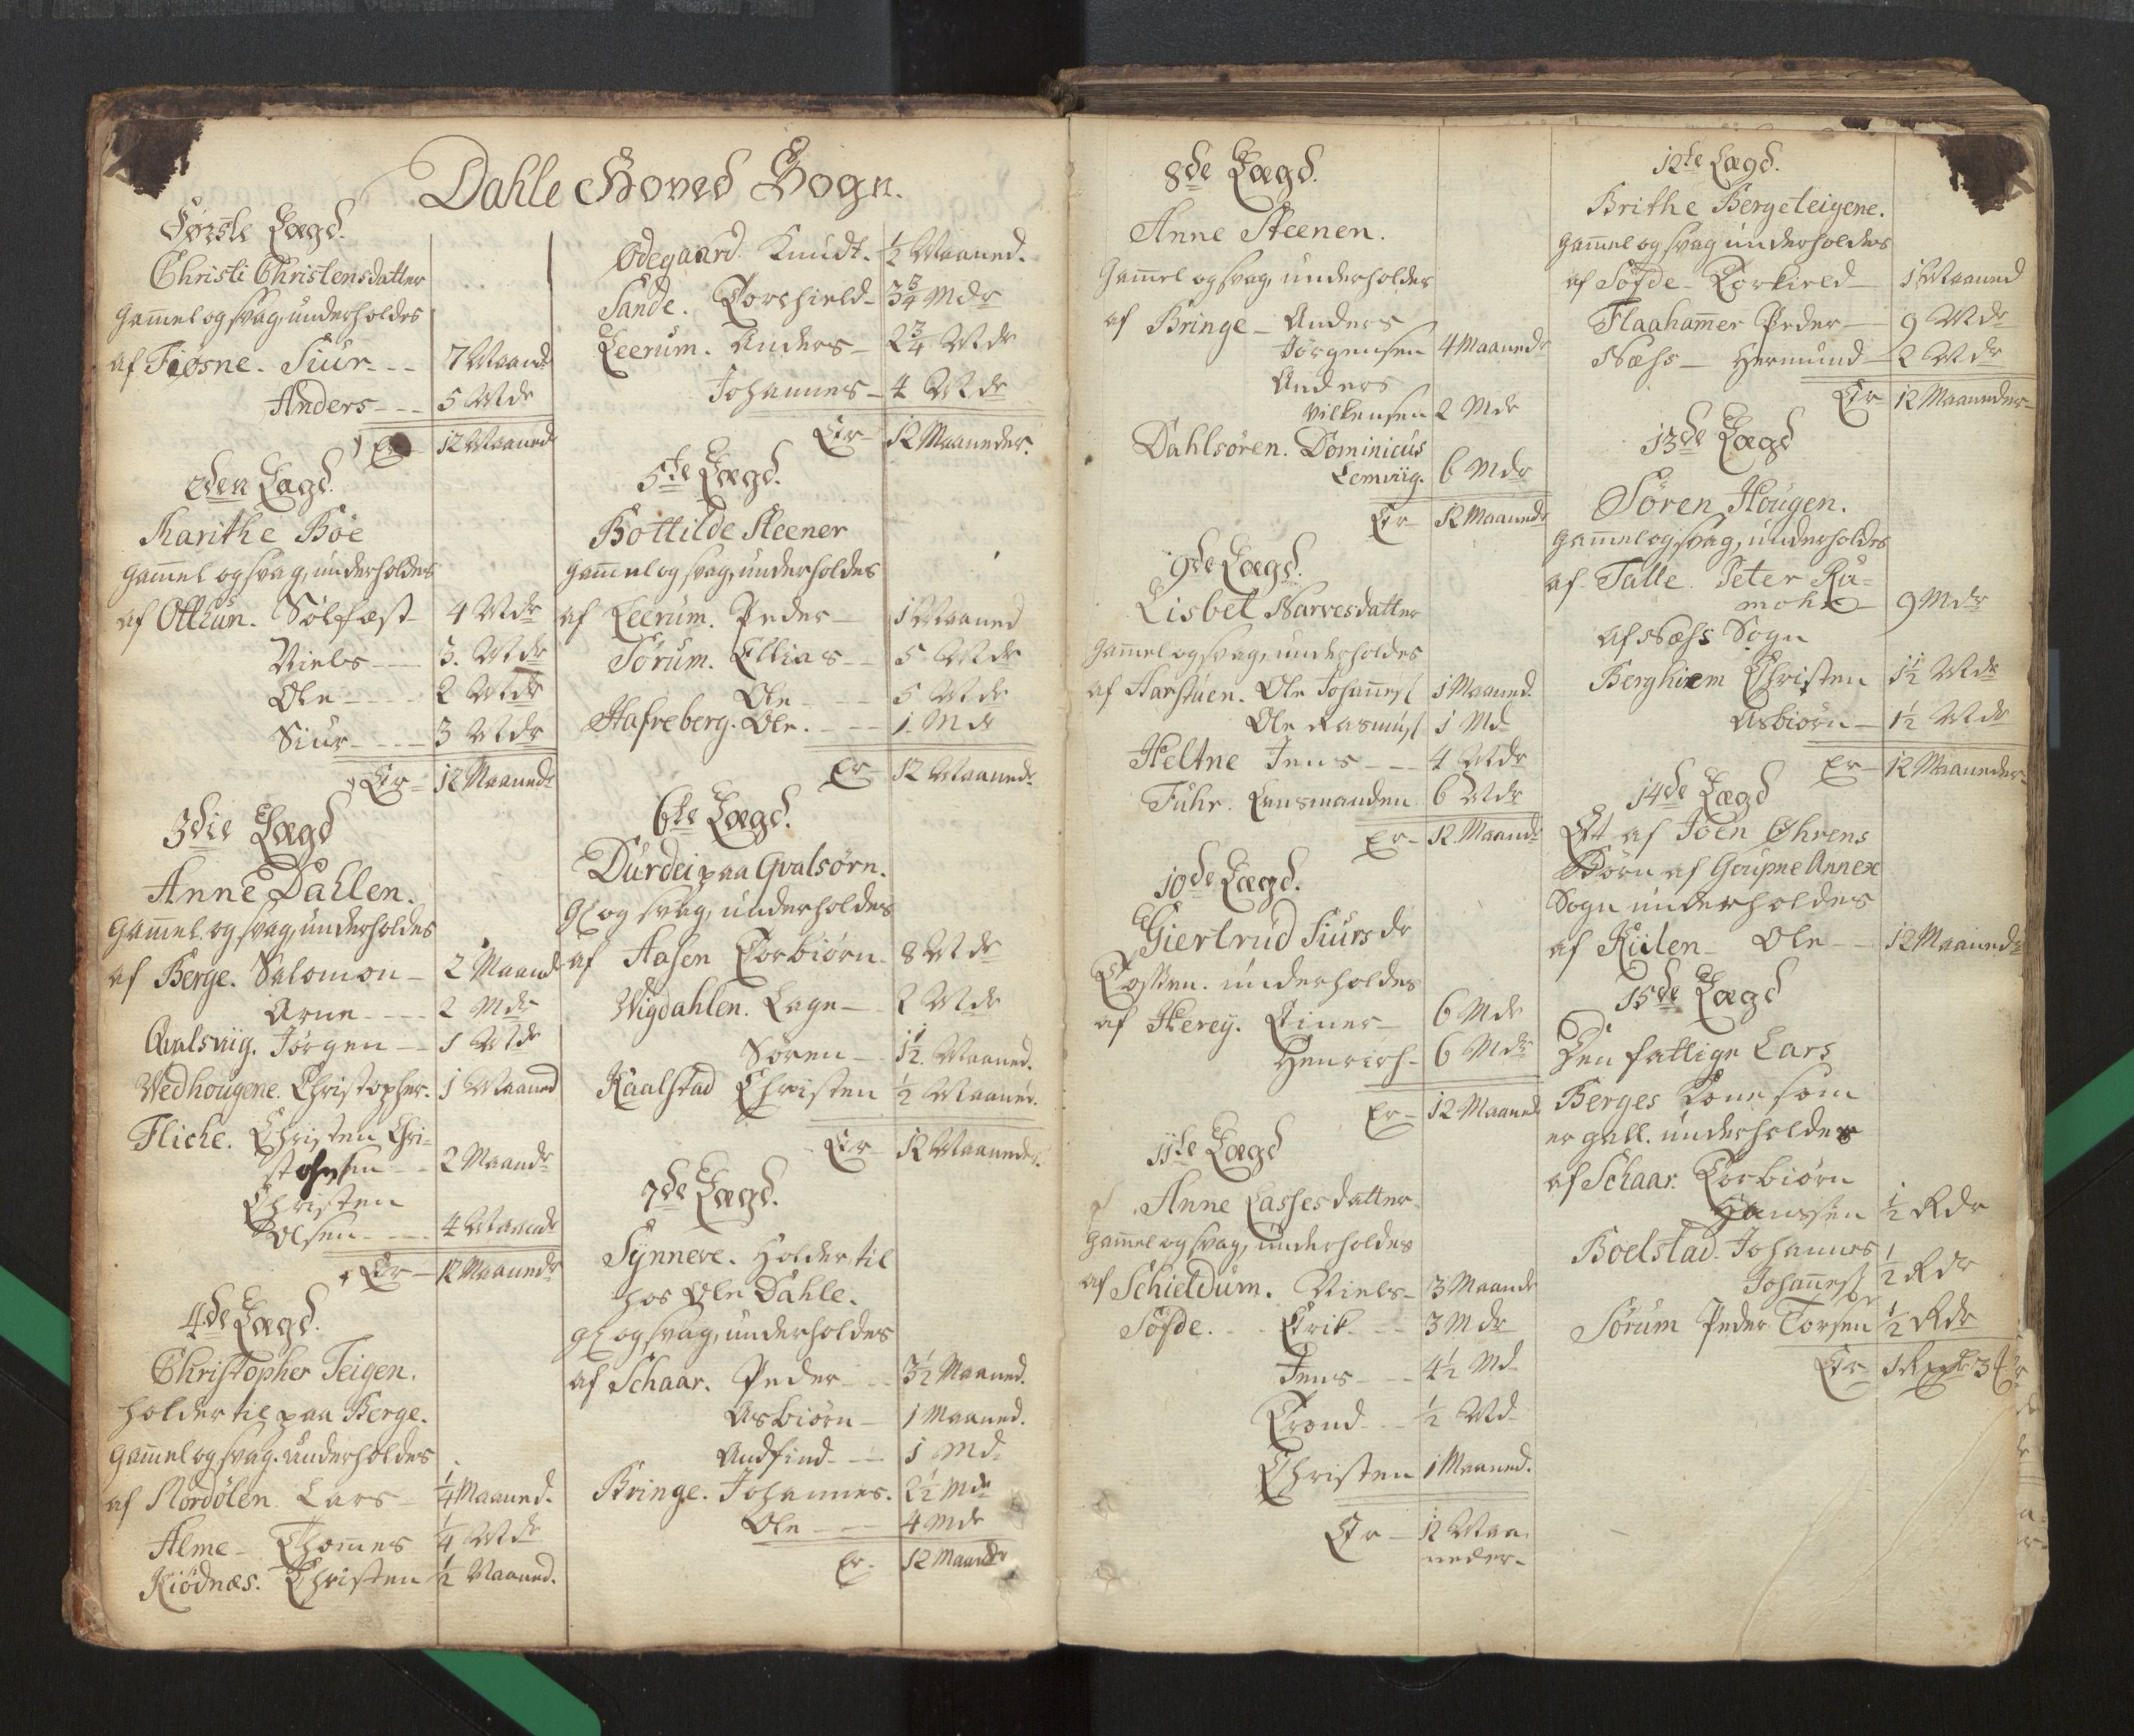 Dahle Hoved Sogn.
Første Lægd.
Christi Christensdatter
Gam̄el og svag, underholdes
af Fiøsne. Siur - - 7 Maaneder
Anders - - 5 Mdr
Er 12 Maaned
2den Lægd.
Marithe Böe
gam̄el og svag, underholdes
af Ottum. Sølfæst - 4 Mdr
Niels - - 3. Mdr
Ole - - - 2 Mdr
Siur - - - 3 Mdr
Er - 12 Maaneder
3die Lægd
Anne Dahlen.
gam̄el og svag, underholdes
af Berge. Salomon - 2 Maand
Arne - - - 2 Mdr
Qvalsviig. Jørgen - - 1 Mdr
Vedhougene. Christopher. 1 Maaned
Fliche. Christen Chri-
stensen - - 2 Maandr
Christen
Olsen - - - 4 Maandr
Er - 12 Maaneder
4de Lægd.
Christopher Teigen.
holder til paa Berge.
gam̄el og svag. underholdes
af Nordölen Lars - 1/4 Maaned.
Alme - Thom̄es 1/4 Mdr
Kiödnæs. Christen 1/2 Maaned.
Ödegaard Knudt. 1/2 Maaned.
Sande. Torchield - 3 3/4 Mdr
Leerum. Anders - 2 3/4 Mdr
Johannes - 4 Mdr
Er - 12 Maaneder.
5te Lægd.
Bottilde Steener
gam̄el og svag, underholdes
af Leerum. Peder - 1 Maaned
Sørum. Ellias - - 5 Mdr
Ole - - 5 Mdr
Hafreberg. Ole. - - 1 Mdr
Er - 12 Maaneder
6te Lægd.
Durdei paa Qvalsørn.
Gl og svag, underholdes
af Aasen Torbiørn - 8 Mdr
Vigdahlen. Lage - 2 Mdr
Søren - 1 1/2 Maaned.
Kaalstad Christen 1/2 Maaned.
Er 12 Maaneder.
7de Lægd.
Synneve. holder til
hos Ole Dahle.
gl og svag, underholdes
af Schaar. Peder - - 3 1/2 Maaned.
Asbiørn - 1 Maaned.
Andfind - - 1 Md.
Bringe. Johannes. 2 1/2 Mdr
Ole - - 4 Mdr
Er. 12 Maandr
8de Lægd.
Anne Steenen.
Gam̄el og svag, underholdes
af Bringe - Anders
Jörgensen 4 Maaneder
Anders
Villensen 2 Mdr
Dahlsören. Dominicus
Lemviig. 6 Mdr
Er - 12 Maaneder
9de Lægd.
Lisbet Narvesdatter
gam̄el og svag, underholdes
af Harstuen. Ole Johan̄es. 1 Maaned.
Ole Rasmus. 1 Md
Heltne Jens - - 4 Mdr
Fuhr. Lensmanden 6 Mdr
Er - 12 Maandr
10de Lægd.
Giertrud Siursdr
Tossen. underholdes
af Herey. Einer - 6 Mdr
Henrich - 6 Mdr
Er - 12 Maaned
11te Lægd
Anne Lassesdatter
Gam̄el og svag, underholdes
af Schieldum. Niels - 3 Maandr
Söfde. - - Erik - - 3 Mdr
Jens - - 4 1/2 Md
Trond - - 1/2 Md
Christen 1 Maaned.
Er - 12 Maa
neder.
12te Lægd.
Brithe Bergeteigene.
gam̄el og svag underholdes
af Söfde - Torkield - 1 Maaned
Flaaham̄er Peder - 9 Mdr
Næss - Hermund - 2 Mdr
Er 12 Maaneder
13de Lægd
Sören Hougen.
gam̄el og svag, underholdes
af Talle Peter Ru-
mohr - 9 Mdr
af Næss Sogn
Berghiem Christen 1 1/2 Mdr
Asbiørn - 1 1/2 Mdr
Er - 12 Maaneder
14de Lægd
Et af Joen Ehrens
Börn af Goupne Annex
Sogn underholdes
af Kiilen - Ole - 12 Maaneder
15de Lægd
Den fattige Lars
Berges Kone som
er gall. underholdes
af Schaar. Torbiörn
Hanssen 1/2 Rdr
Boelstad. Johannes
Johan̄es. 1/2 Rdr
Sørum Peder Torsen 1/2 Rdr